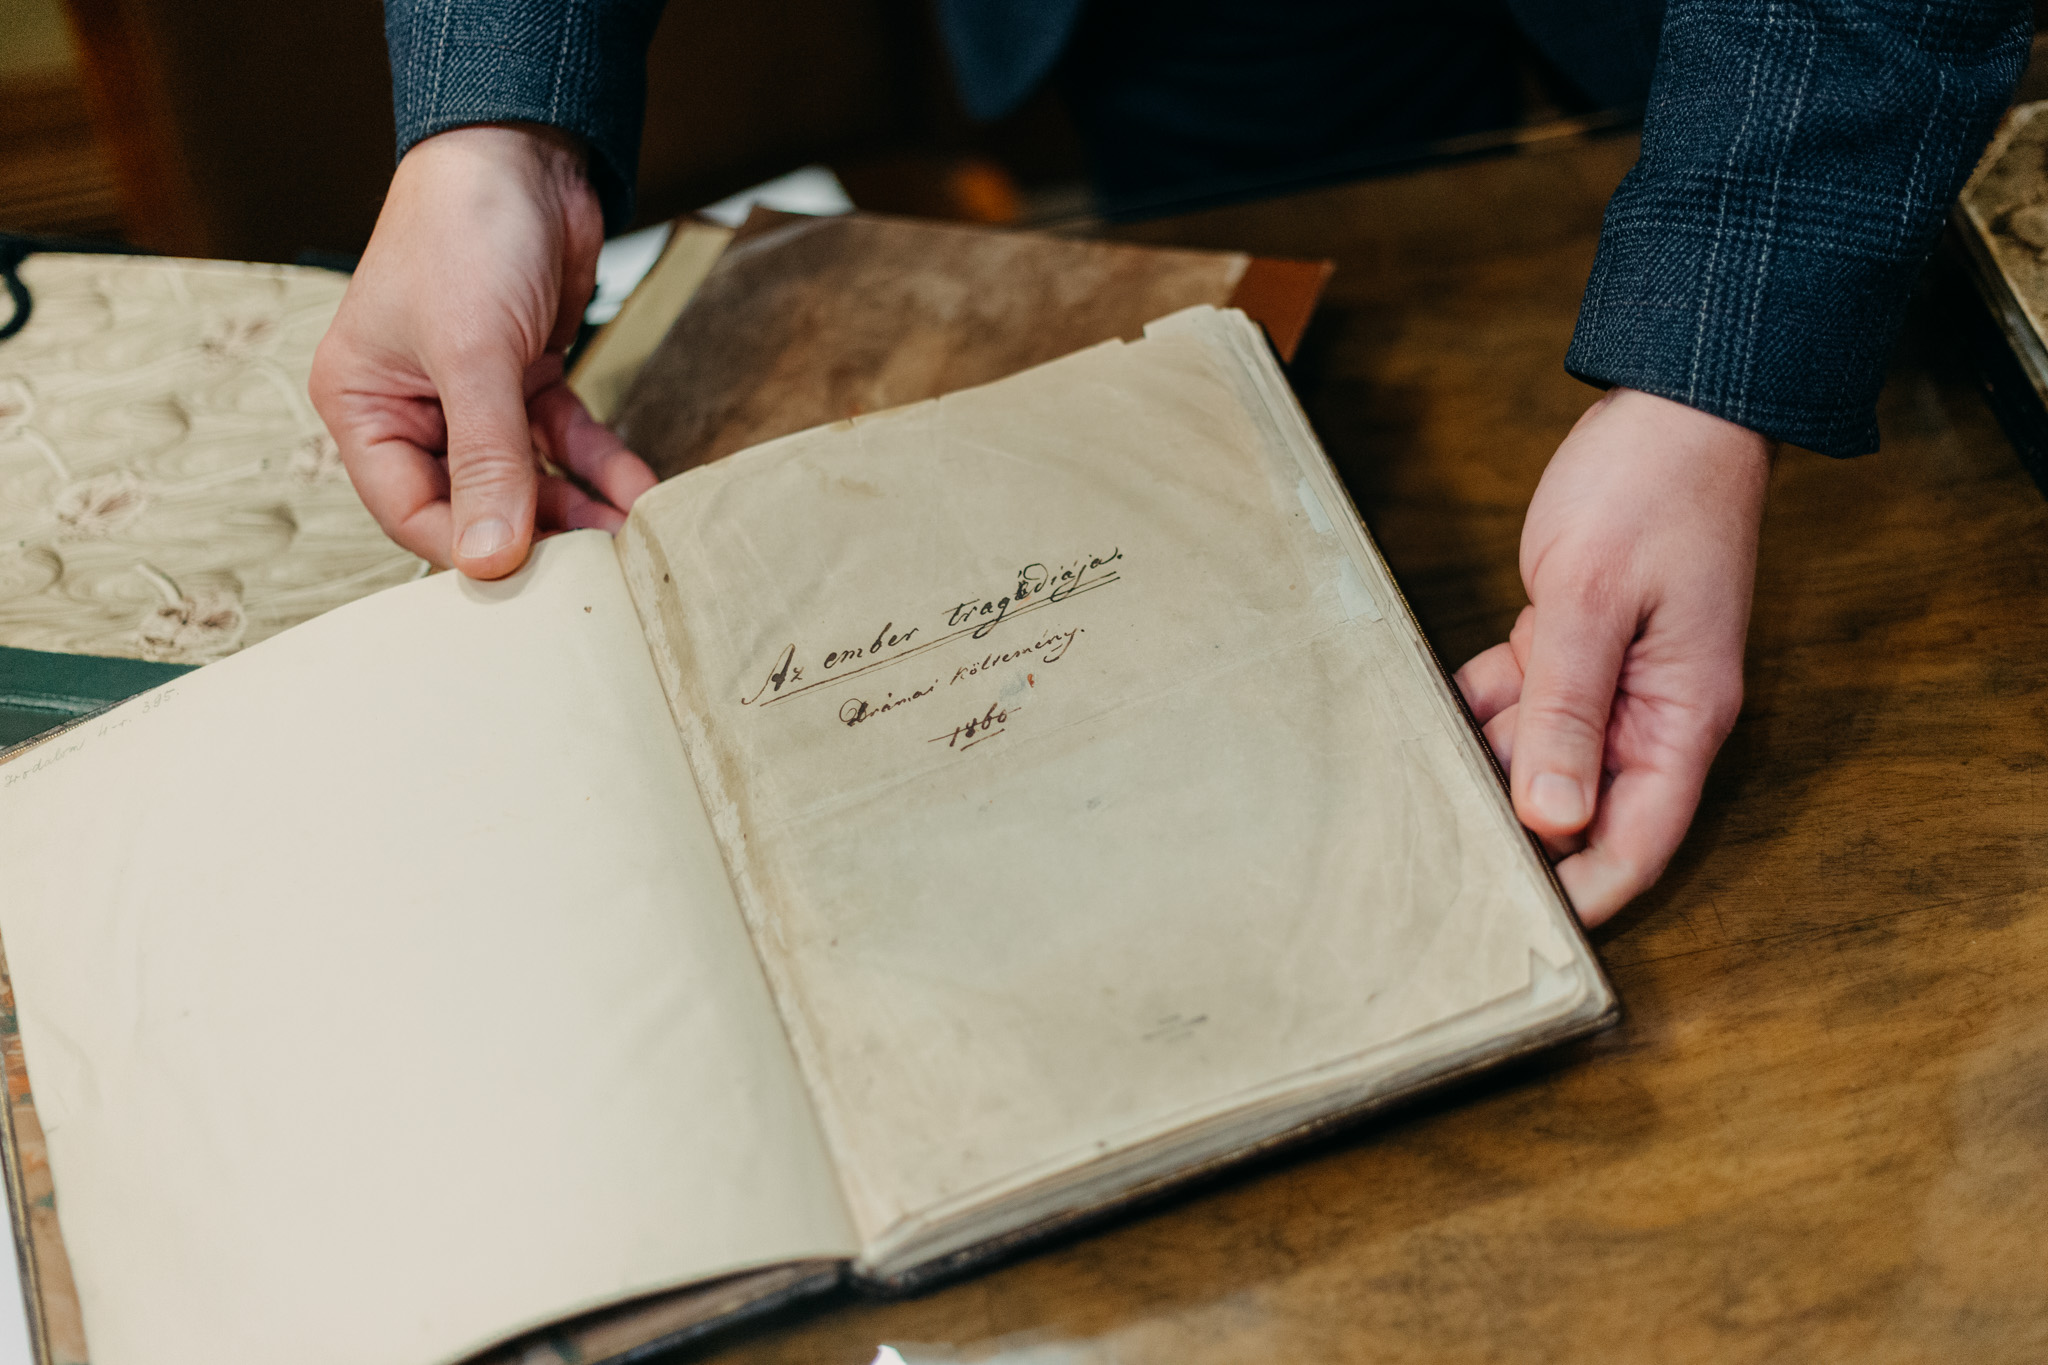 Irodalom 4-r. 395.
Az ember tragédiája.
Drámai költemény.
1860